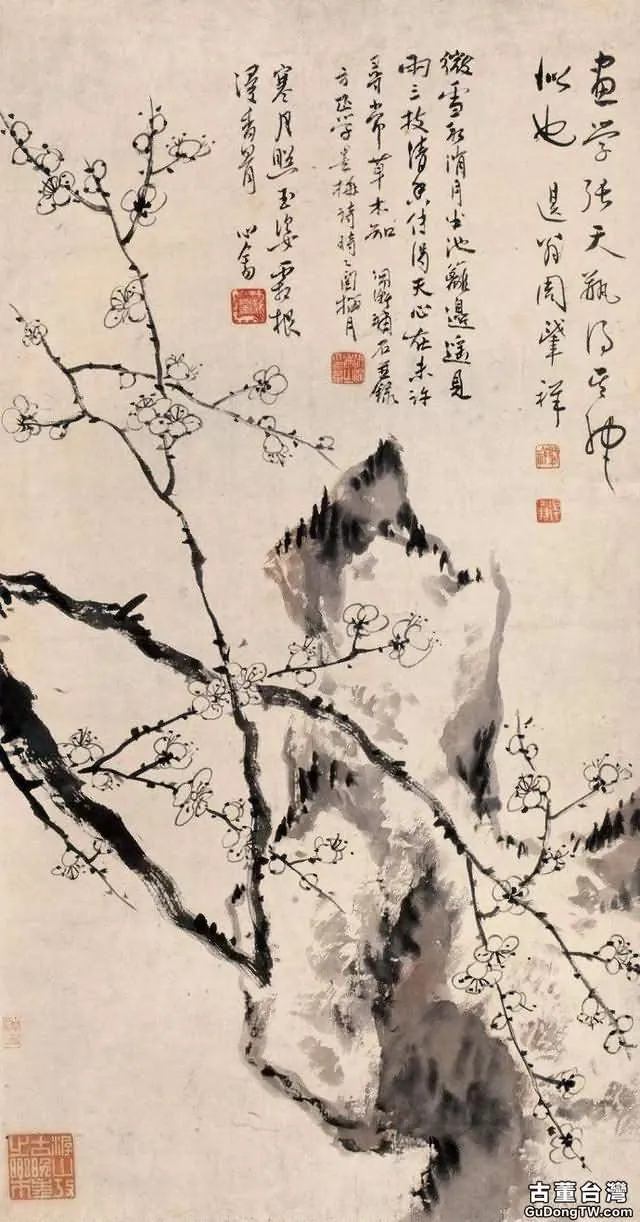 畫学張天瓶得其神
似也 退翁周肇祥
微雪初消月半池籬邊遙見
兩三枝清香傳得天心在未許
尋常草木知 石並録
方正学畫梅詩時 梅月
寒月照玉姿霜根
淂春 心畬
古董台灣
GuDongTW.com